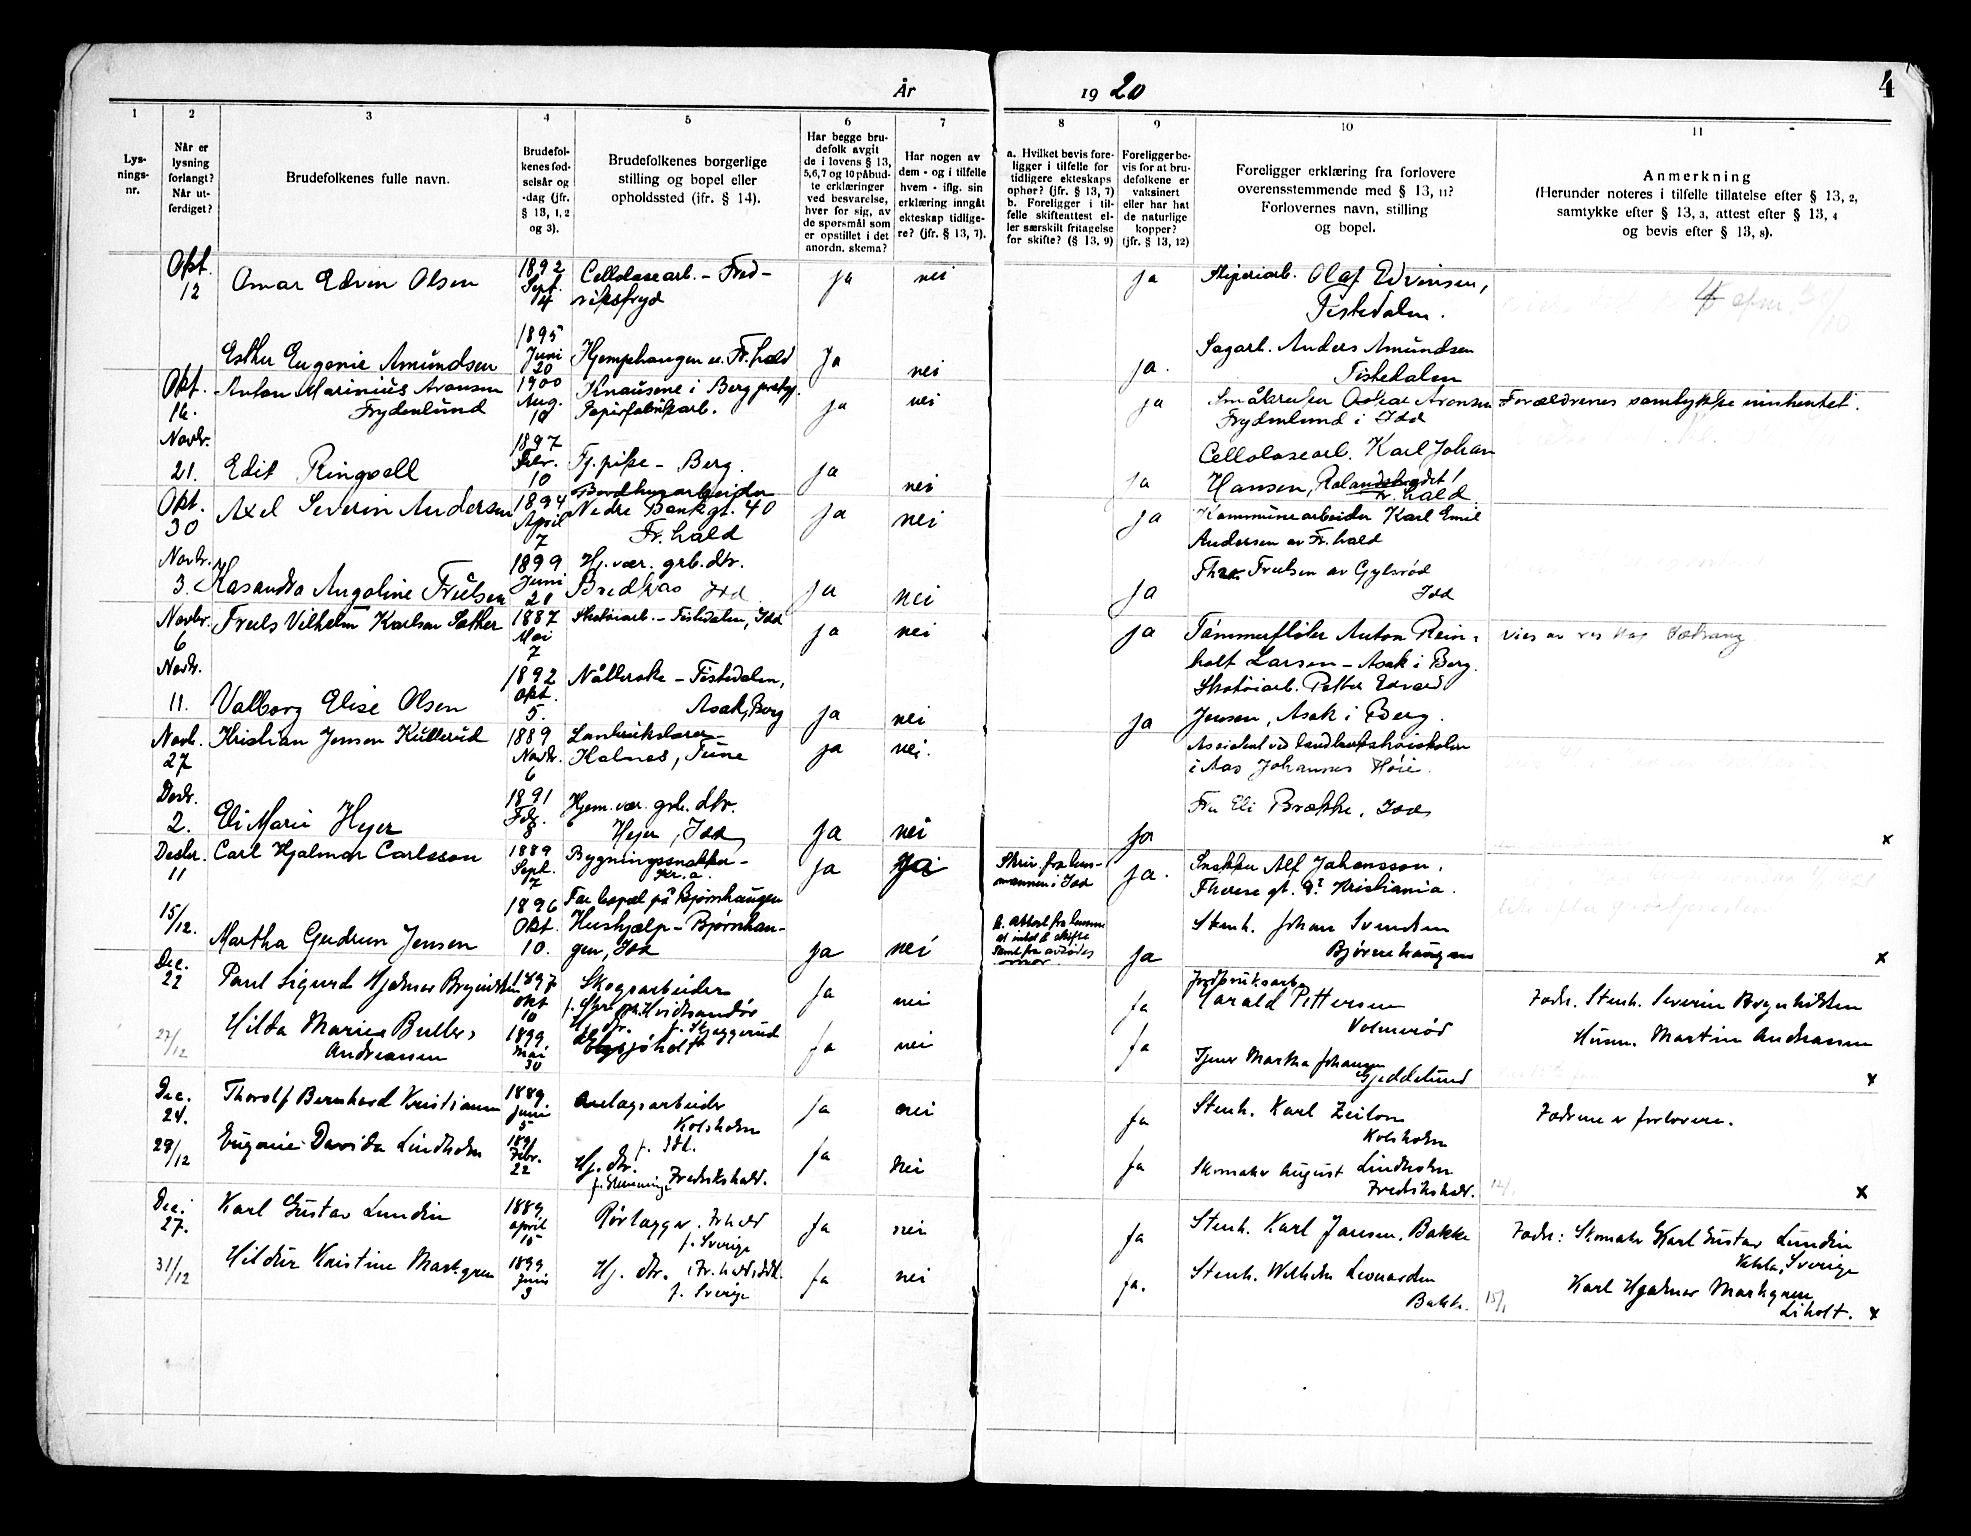 År 1920
4
1
2
3
4
5
6
7
8
9
10
11
Lys-
nings-
nr.
Når er
lysning
forlangt?
Når ut-
ferdiget?
Brudefolkenes fulle navn.
Brudefol-
kenes fød-
selsår og
-dag (jfr.
§ 13, 1, 2
og 3).
Brudefolkenes borgerlige
stilling og bopel eller
opholdssted (jfr. § 14).
Har begge bru-
defolk avgit
de i lovens § 13,
5,6,7 og 10 påbud-
te erklæringer
ved besvarelse,
hver for sig, av
de spørsmål som
er opstillet i det
anordn. skema?
Har nogen av
dem - og i tilfelle
hvem - iflg. sin
erklæring inngåt
ekteskap tidlige-
re? (jfr. § 13, 7).
a. Hvilket bevis fore-
ligger i tilfelle for
tidligere ekteskaps
ophør? (jfr. § 13, 7)
b. Foreligger i til-
felle skifteattest el-
ler særskilt fritagelse
for skifte? (§ 13, 9)
Foreligger be-
vis for at bru-
defolkene er
vaksinert
eller har hat
de naturlige
kopper?
(jfr. § 13, 12)
Foreligger erklæring fra forlovere
overensstemmende med § 13, 11?
Forlovernes navn, stilling
og bopel.
Anmerkning
(Herunder noteres i tilfelle tillatelse efter § 13, 2,
samtykke efter § 13, 3, attest efter § 13, 4
og bevis efter § 13, 8).
Okt.
12
Omar Edvin Olsen
1892
Sept.
14
Cellolosearb. - Fred-
riksfryd
ja
nei
ja
Sliperiarb. Olaf Edvinsen,
Tistedalen.
Esther Eugenie Amundsen
1895
Juni
20
Hjemphaugen v. Fr.hald
Ja
nei
ja.
Sagarb. Anders Amundsen
Tistedalen
Okt.
16.
Anton Marinius Aronsen
Frydenlund
1900
Aug.
10
Knausene i Berg prestgj.
Papirfabrikarb.
ja
nei
ja
Småbruker Oskar Aronsen
Frydenlund i Idd
Forældrenes samtykke innhentet.
Novbr.
21.
Edit Ringvall
1897
Febr.
10
Tj.pike - Berg.
ja
nei
ja
Cellolosearb. Karl Johan
Hansen,
Fr.hald
Okt.
30
Axel Severin Andersen
1894
April
7
Bordhusarbeider
Nedre Bankgt. 40
Fr.hald
ja
nei
ja
Kommunearbeider Karl Emil
Andersen av Fr.hald
Novbr.
3.
Kasandra Angoline Trulsen
1899
Juni
20
Hj.vær. grb.dtr.
Idd
ja
nei
ja
Trulsen av Gylsrød
Idd
Novbr.
6
Truls Vilhelm Karlsen Sæther
1887
Mai
7
Skotøiarb. - Tistedalen, Idd
ja
nei
ja
Tømmerfløter Anton Rein-
holt Larsen - Asak i Berg.
vies av res kap
Novbr.
11.
Valborg Elise Olsen
1892
Okt.
5.
Nållerske - Tistedalen,
Asak, Berg
ja
nei
ja
Skotøiarb. Petter Edvard
Jensen, Asak i Berg.
Novb.
27
Kristian Jensen Kullerud
1889
Novbr.
6
Lanbrukslærer
Kalnes, Tune
ja
nei.
Assistent ved landbrukshøiskolen
i Aas Johannes Høie.
Desbr.
2.
Eli Marie Hejer
1891
Feb.
8
Hjem.vær. grb. dtr.
Hejer, Idd
ja
nei
ja
Fru Eli Brække, Idd
x
Desbr.
11
Carl Hjalmar Carlsson
1889
Sept.
7
Bygningssnekker -
Kr.a.
ja
Ja
Skriv. fra lens-
mannen i Idd
ja.
Snekker Alf Johansson,
Therese gt. Kristiania.
15/12.
Martha Gudrun Jensen
1896
Okt.
10.
Far bopæl på Bjørnhaugen
Hushjælp - Bjørnhau-
gen, Idd
ja
nei
b. Attest fra lensm.
ja
Stenh. Johan Svendsen
Bjørnehaugen
x
Dec.
22
Paul Sigurd Hjalmar Brynildsen
1897
Okt
10
Skogsarbeider
ja
nei
ja
Jordbruksarb.
Harald Pettersen
Fadr. Stenh. Severin Brynildsen
27/12
Hilda Marie
Andreassen
1899
Mai
30
ja
nei
ja
Tjener Martha Johansen
Gjeddelund
Husm. Martin Andreassen
x
Dec.
24.
Thorolf Bernhard Kristiansen
1889
Juni
5
Anlægsarbeider
Kolsholm
f. Idd.
ja
nei
ja
Stenh. Karl Zeilon
Kolsholm
Fadrene er forlovere.
29/12
Eugenie Davida Lindholm
1891
Febr.
22
Hj. dtr.
Fredrikshald.
ja
nei
ja
Skomaker August Lindholm
Fredrikshald.
x
Dec.
27.
Karl Gustav Lundin
1889
april
15
Rørlægger. Fr.hald
f. Sverige
ja
nei
ja
Stenh. Karl Jansen, Bakke
Fadr: Skomaker Karl Gustav Lundin
Sverige
31/12
Hildur Kristine Markgren
1899
Juni
3
Hj. dtr.
f. Sverige
ja
nei
ja.
Stenh. Wilhelm Leonardsen
Bakk.
15/1
Karl Hjalmar Markgren
Liholt. x